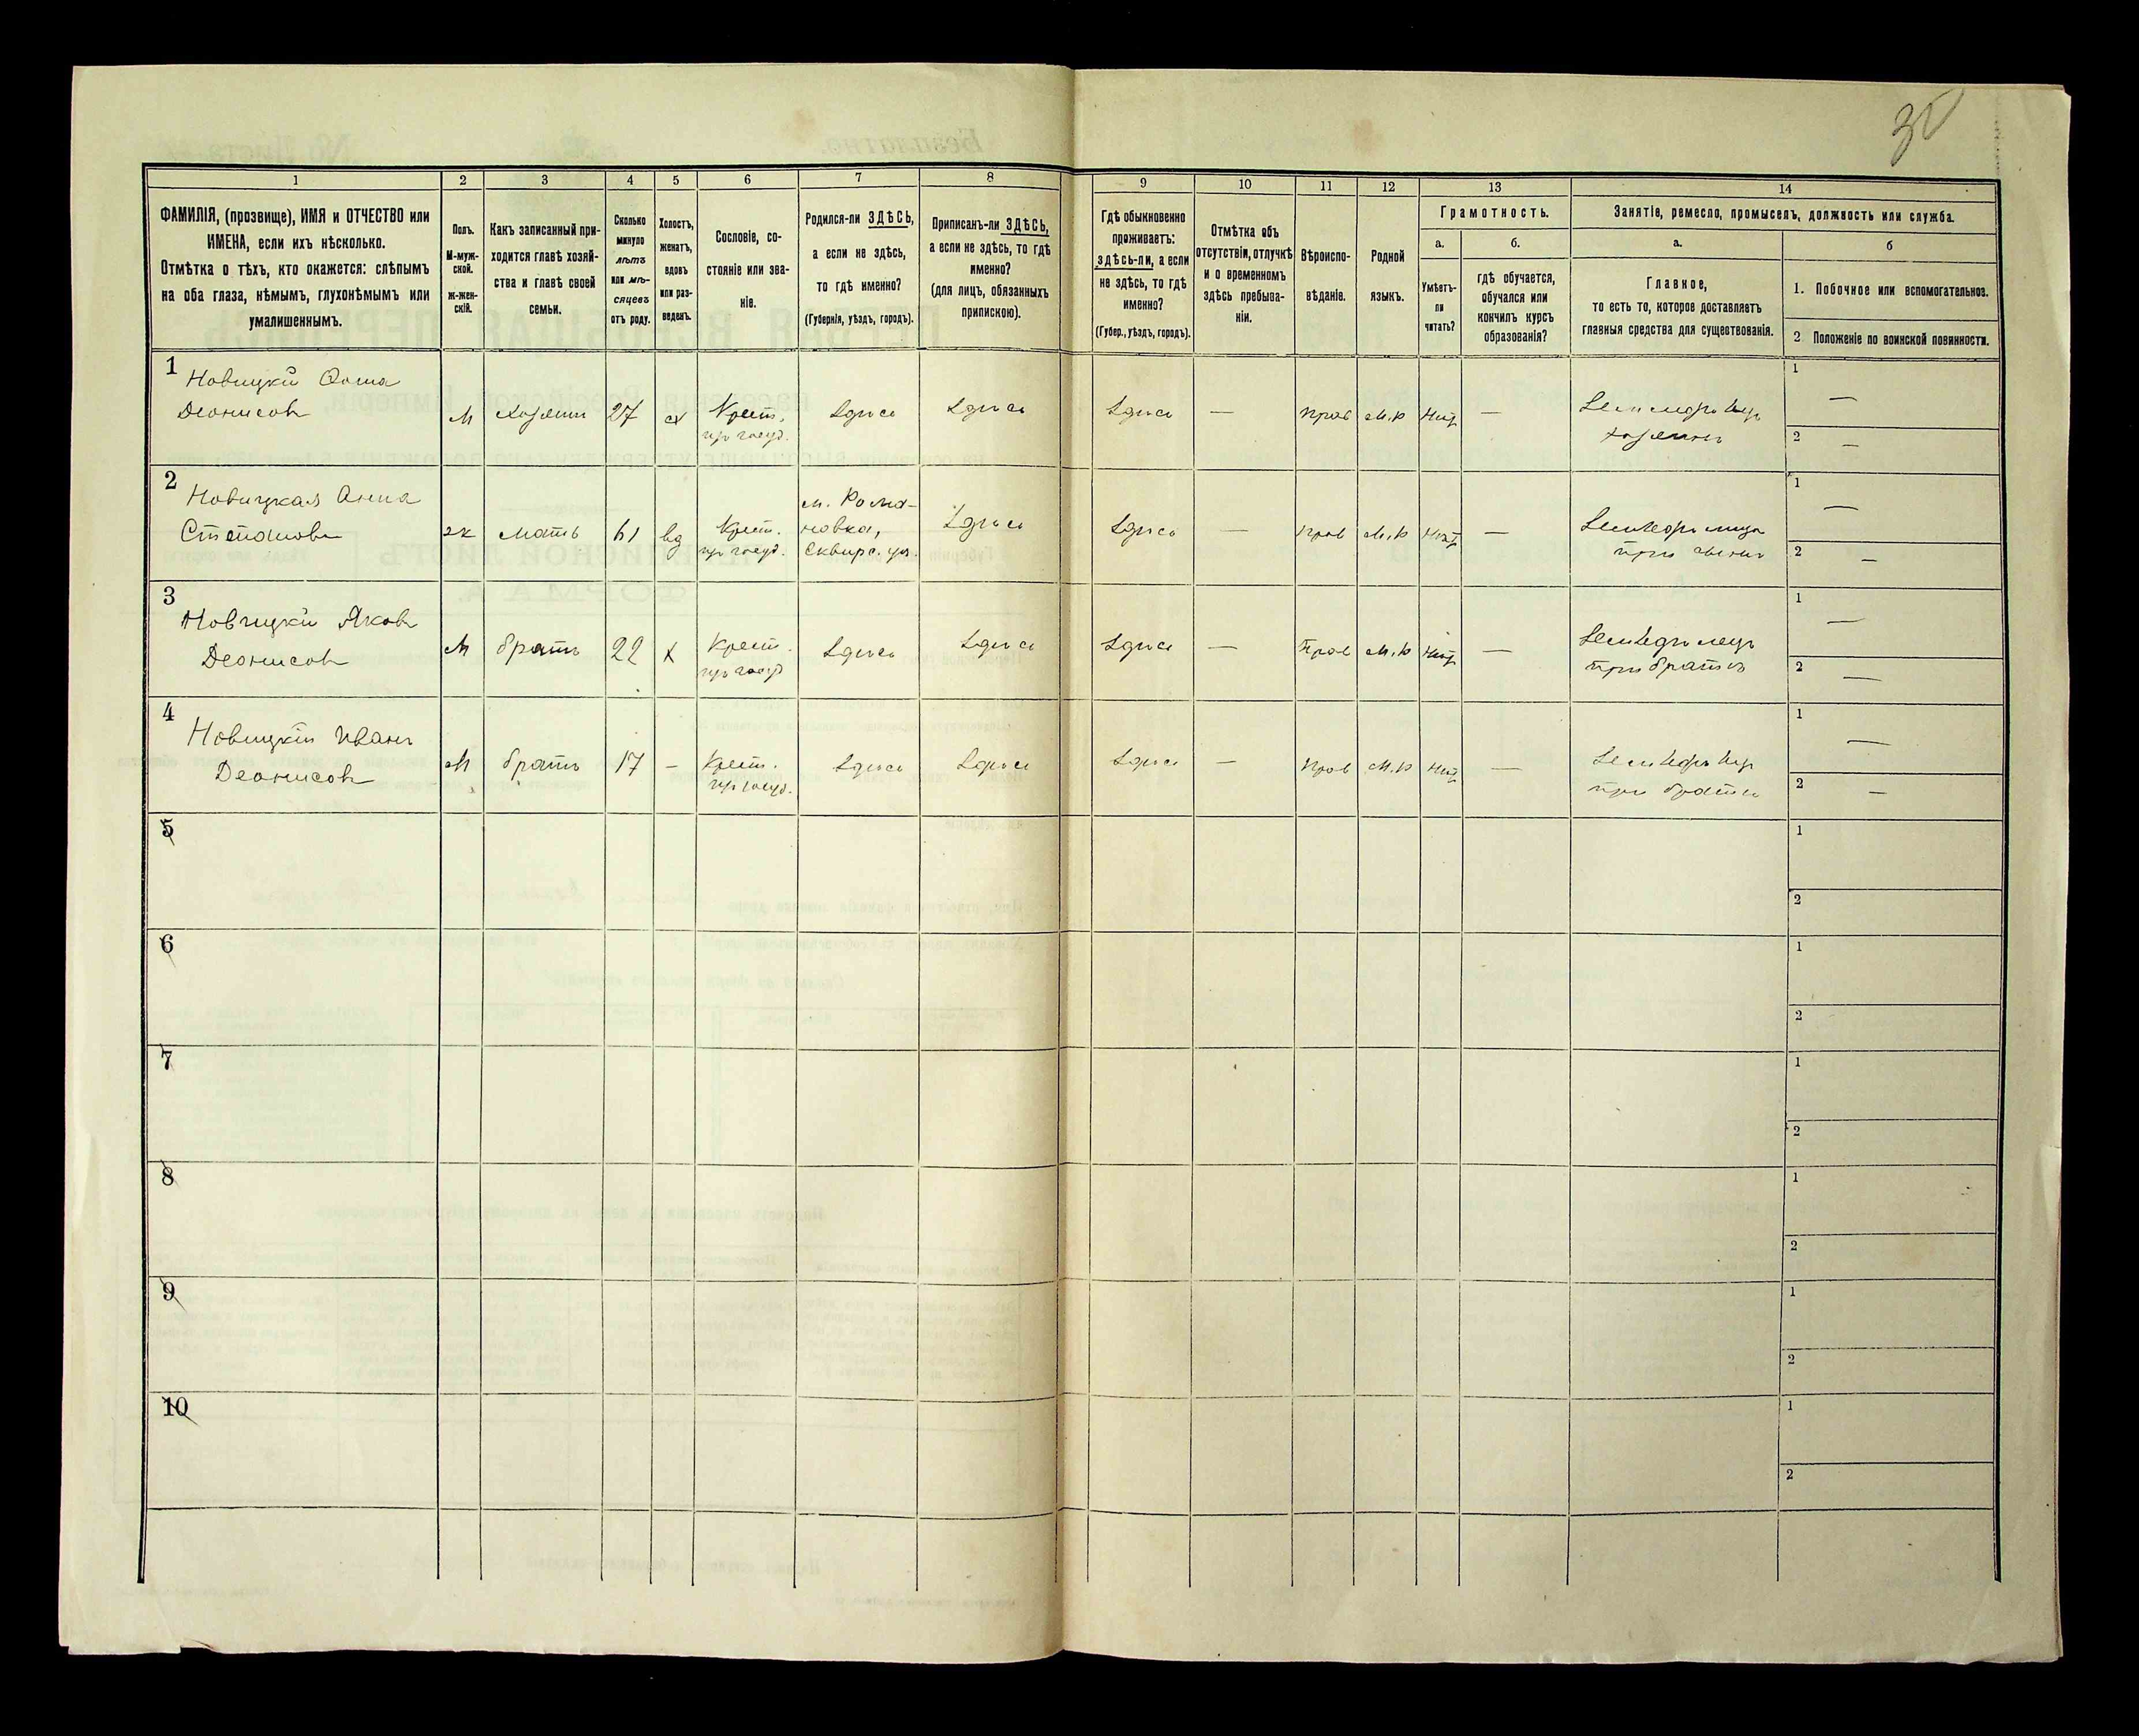 30
1
2
3
4
5
6
7
8
9
10
11
12
13
14
ФАМИЛІЯ, (прозвище), ИМЯ и ОТЧЕСТВО или
ИМЕНА, если ихъ нѣсколько.
Отмѣтка о тѣхъ, кто окажется: слѣпымъ
на оба глаза, нѣмымъ, глухонѣмымъ или
умалишеннымъ.
Полъ.
М-муж-
ской.
ж-жен-
скій.
Какъ записанный при-
ходится главѣ хозяй-
ства и главѣ своей
семьи.
Сколько
минуло
лѣтъ
или мѣ-
сяцевъ
отъ роду.
Холостъ,
женатъ,
вдовъ
или раз-
веденъ.
Сословіе, со-
стояніе или зва-
ніе.
Родился-ли ЗДѢСЬ,
а если не здѣсь,
то гдѣ именно?
(Губернія, уѣздъ, городъ).
Приписанъ-ли ЗДѢСЬ,
а если не здѣсь, то гдѣ
именно?
(для лицъ, обязанныхъ
припискою).
Гдѣ обыкновенно
проживаетъ:
здѣсь-ли, а если
не здѣсь, то гдѣ
именно?
(Губер., уѣздъ, городъ).
Отмѣтка объ
отсутствіи, отлучкѣ
и о временномъ
здѣсь пребыва-
ніи.
Вѣроиспо-
вѣданіе.
Родной
языкъ.
Грамотность.
а.
Умѣетъ-
ли
читать?
б.
гдѣ обучается,
обучался или
кончилъ курсъ
образованія?
Занятіе, ремесло, промыселъ, должность или служба.
а.
Главное,
то есть то, которое доставляетъ
главныя средства для существованія.
б
1. Побочное или вспомогательное.
2 Положеніе по воинской повинности.
1
Новицкій Ѳома
Деонисовъ
М
хозяинъ
27
х
Крест.
здѣсь
здѣсь
здѣсь
—
прав
м.р
нѣтъ
—
хозяинъ
1 —
2 —
2
Новицкая Анна
Степанова
ж
мать
61
вд
Крест.
м. Рома-
новка,
Сквирс. уѣз.
здѣсь
здѣсь
—
прав
м.р
нѣтъ
—
при сынѣ
1 —
2 —
3
Новицкій Яковъ
Деонисовъ
М
братъ
22
х
Крест.
здѣсь
здѣсь
здѣсь
—
прав
м.р
нѣтъ
—
при братѣ
1 —
2 —
4
Новицкій Иванъ
Деонисовъ
М
братъ
17
—
Крест.
здѣсь
здѣсь
здѣсь
—
прав
м.р
нѣтъ
—
при братѣ
1 —
2 —
5
1
2
6
1
2
7
1
2
8
1
2
9
1
2
10
1
2